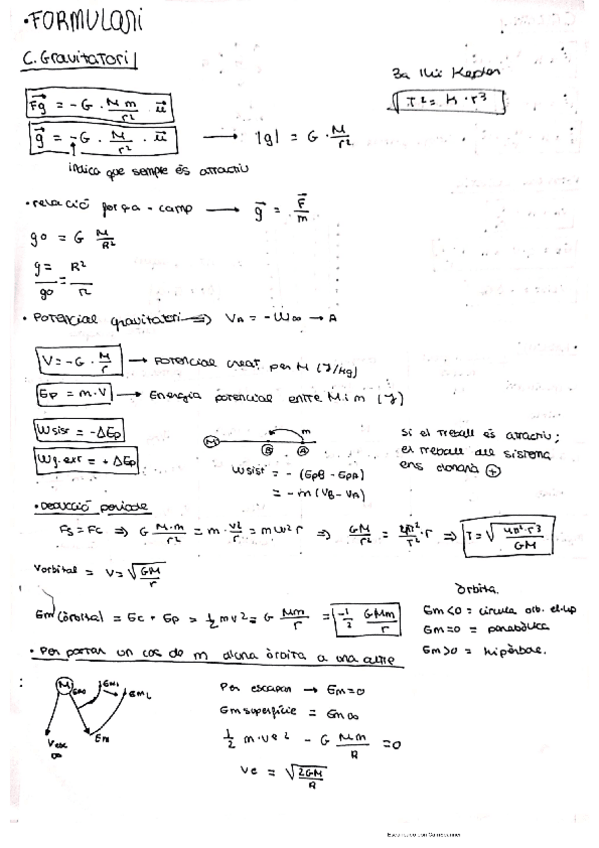 •FORMULARI
C. Gravitatori
3a llei Kepler
T² = K · r³
F⃗g = -G · M m / r² · u⃗
g⃗ = -G · M / r² · u⃗ → |g| = G · M / r²
indica que sempre és atractiu
• relació força - camp → g⃗ = F⃗ / m
g0 = G M / R²
g / g0 = R² / r²
• Potencial gravitatori ⇒ VA = -W∞ → A
V = -G · M / r → Potencial creat per M (J/kg)
Ep = m · V → Energia potencial entre M i m (J)
Wsist = -ΔEp
Wf. ext = + ΔEp
M B A m
Wsist = - (EpB - EpA)
= - m (VB - VA)
si el treball és atractiu;
el treball del sistema
ens donarà +
• Deducció periode
Fg = Fc ⇒ G M · m / r² = m · v² / r = m ω² r ⇒ GM / r² = 4π² / T² · r ⇒ T = √ 4π² · r³ / GM
Vorbital = V = √ GM / r
Em (òrbital) = Ec + Ep = ½ mv² = G Mm / r = -1/2 GMm / r
Òrbita.
Em<0 = circula orb. el·lip
Em=0 = parabòlica
Em>0 = hipèrbole.
• Per portar un cos de m d'una òrbita a una altre
:
M Em1 Em2
Vesc ∞ Em
Per escapar → Em=0
Em superfície = Em ∞
½ m · ve² - G Mm / R = 0
Ve = √ 2GM / R
Escaneado con CamScanner